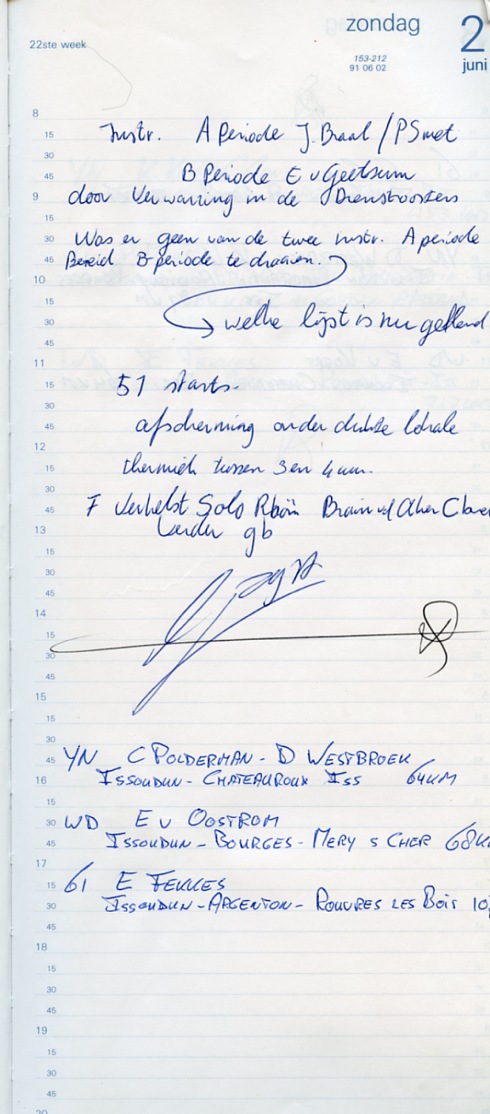 zondag 2
22ste week
153-212
91 06 02
juni
8
15 Instr. A Periode J. Braal / P Smet
30
45 B Periode E v Geelsum
9 door Verwarring in de Dienstroosters
15
30 Was er geen van de twee instr. A periode
45 Bereid B periode te draaien.
10
15
30 welke lijst is nu geldend
45
11
15 51 starts.
30
45 afscherming onder dichte lokale
12
15 thermiek tussen 3 en 4 uur.
30
45 F Verhelst Solo Rhön Brain v/d Aher
13 verder gb
15
30
45
14
15
30
45
15
15
30
45 YN C POLDERMAN - D WESTBROEK
16 ISSOUDUN - CHATEAUROUX ISS 64KM
15
30 WD E v OOSTROM
45 ISSOUDUN - BOURGES - MERY S CHER 68K
17
15 61 E FEKKES
30 ISSOUDUN - ARGENTON - ROUVRES LES BOIS 10
45
18
15
30
45
19
15
30
45
20